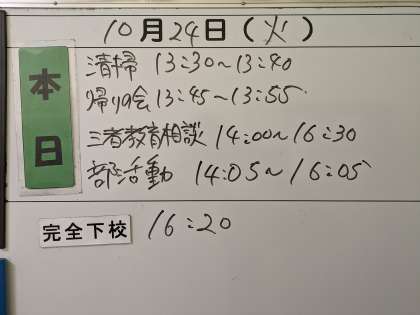 10月24日(火)
本日
清掃 13:30~13:40
帰りの会 13:45~13:55
三者教育相談 14:00~16:30
部活動 14:05~16:05
完全下校 16:20